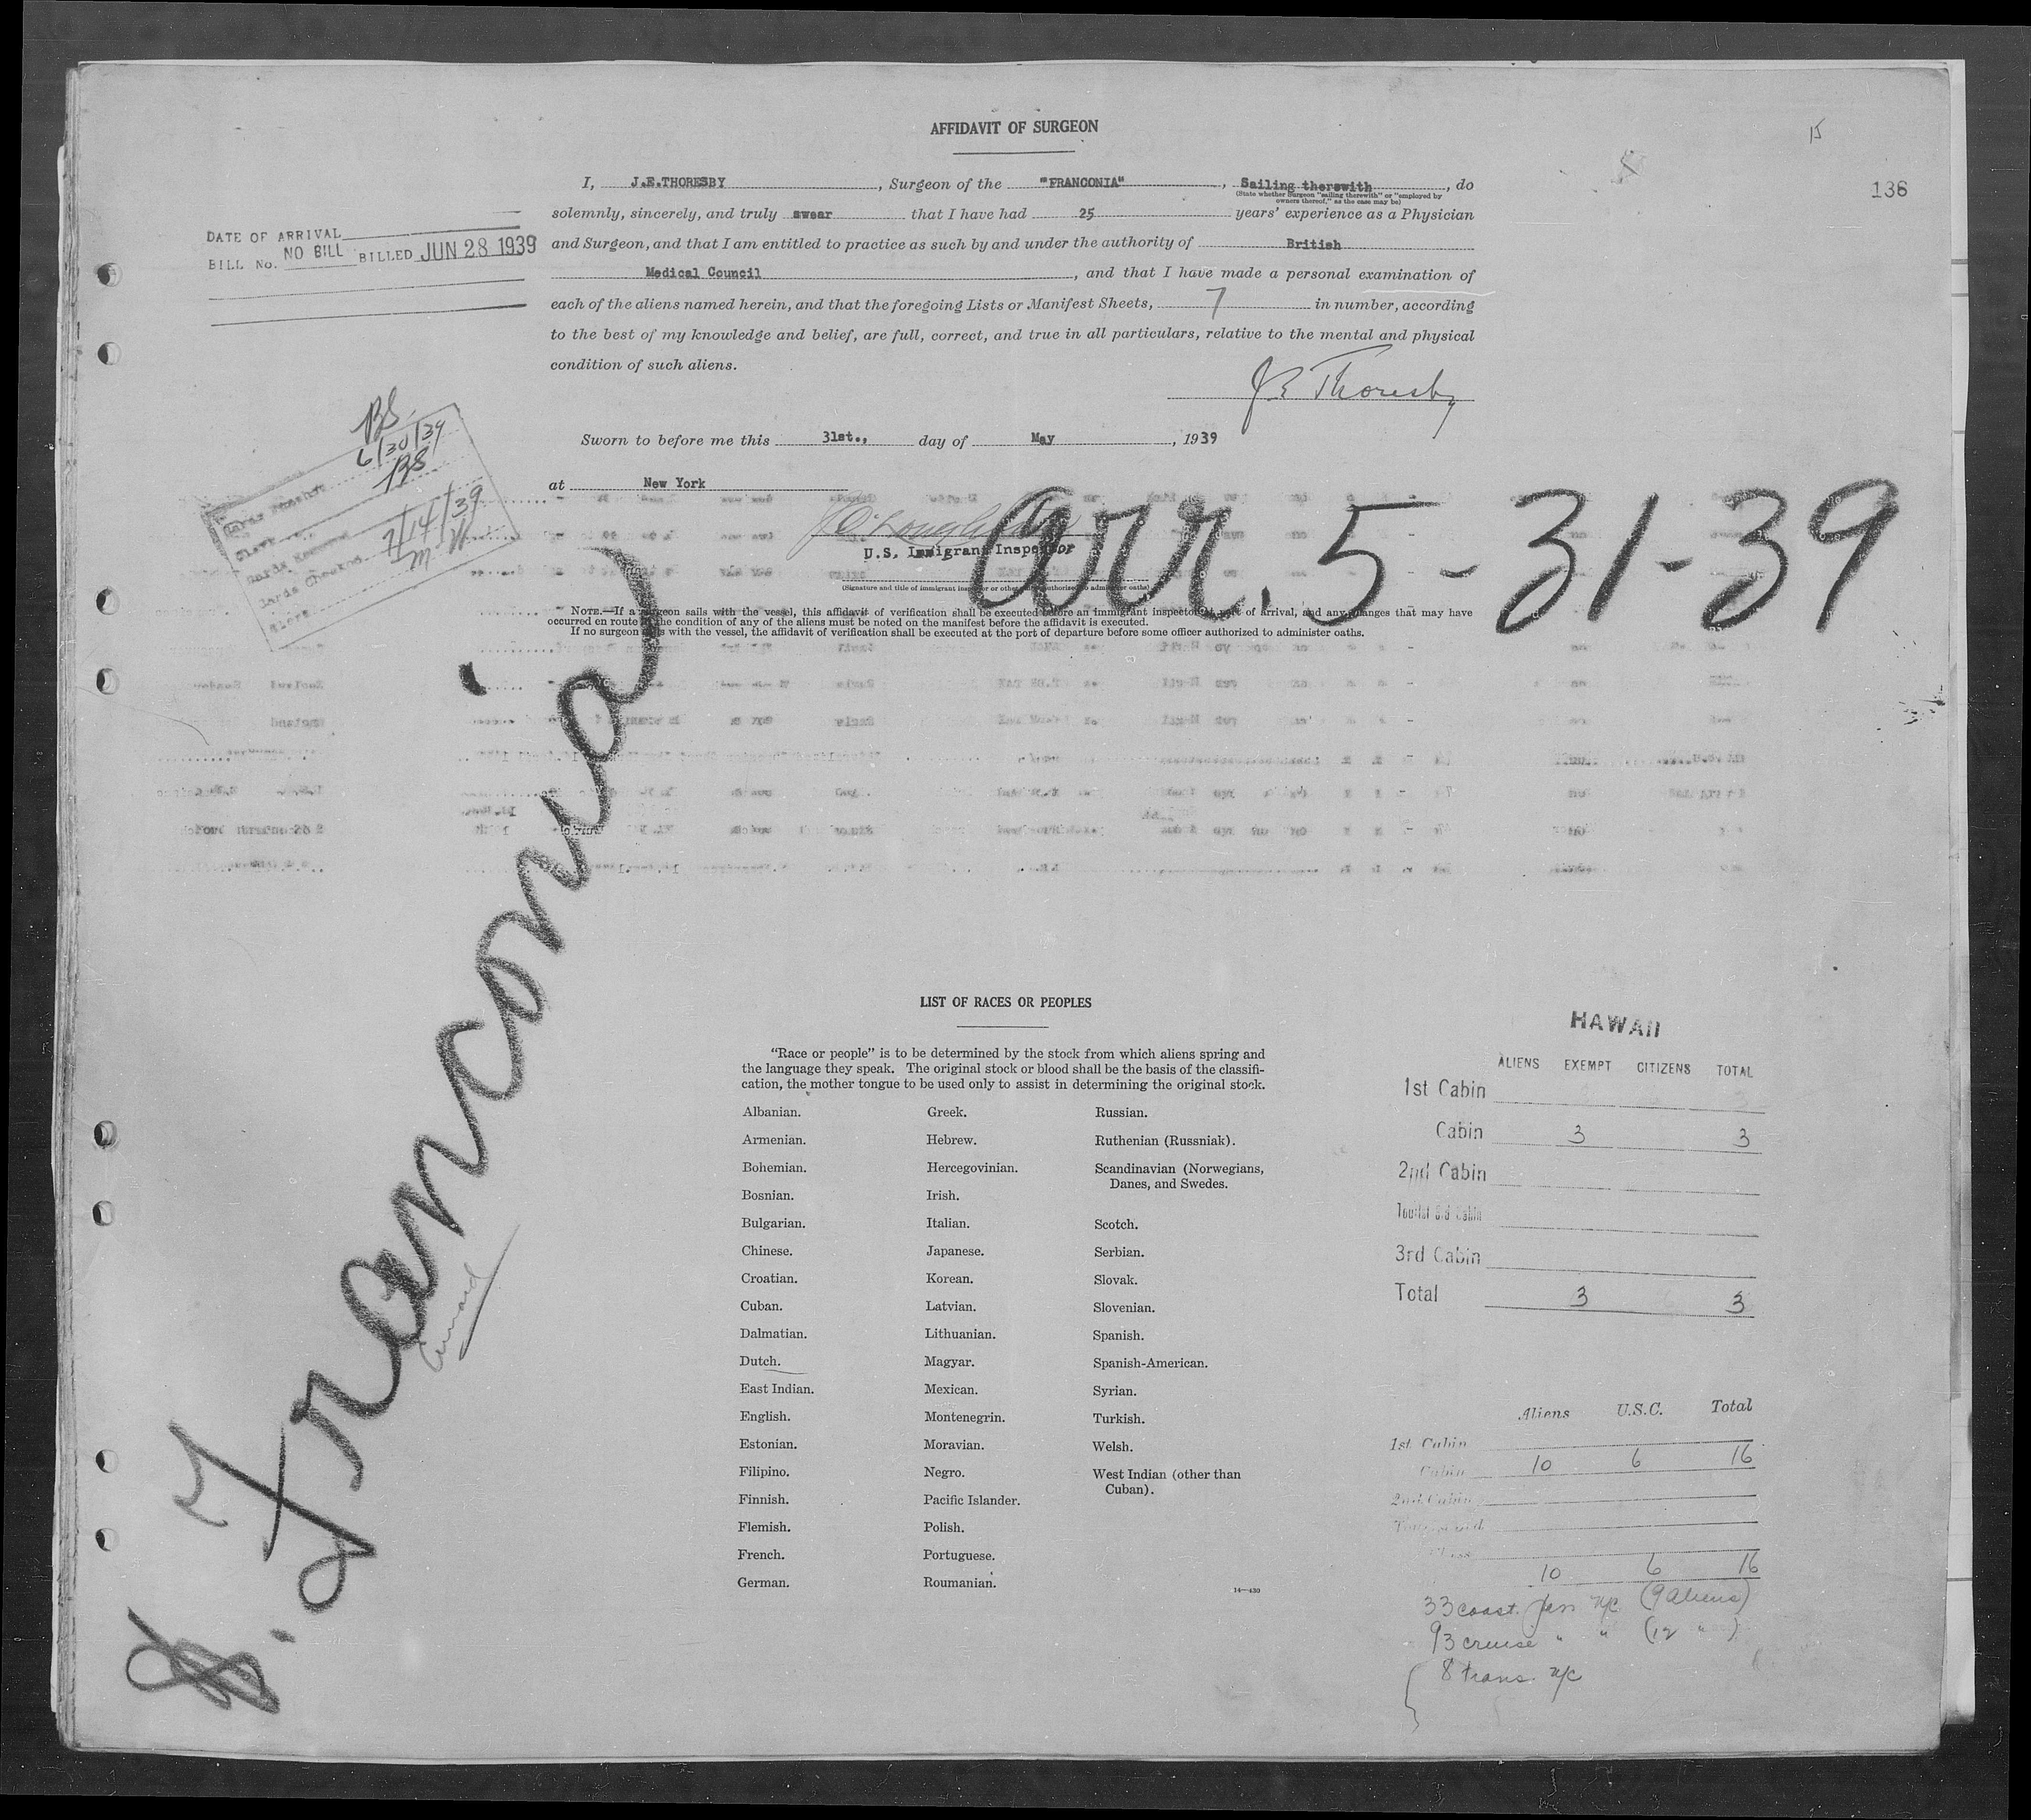 AFFIDAVIT OF SURGEON
15
136
I, J.E.THORESBY, Surgeon of the "FRANCONIA", Sailing therewith, do
(State whether Surgeon "sailing therewith" or "employed by
owners thereof," as the case may be)
solemnly, sincerely, and truly swear that I have had 25 years' experience as a Physician
and Surgeon, and that I am entitled to practice as such by and under the authority of British
Medical Council, and that I have made a personal examination of
each of the aliens named herein, and that the foregoing Lists or Manifest Sheets, 7 in number, according
to the best of my knowledge and belief, are full, correct, and true in all particulars, relative to the mental and physical
condition of such aliens.
J E Thoresby
DATE OF ARRIVAL
BILL No. NO BILL BILLED JUN 28 1939
Sworn to before me this 31st., day of May, 1939
at New York
U.S. Immigrant Inspector
(Signature and title of immigrant inspector or other officer authorized to administer oaths)
BS
6/30/39
BS
7/14/39
arr. 5-31-39
NOTE.—If a surgeon sails with the vessel, this affidavit of verification shall be executed before an immigrant inspector at port of arrival, and any changes that may have
occurred en route in the condition of any of the aliens must be noted on the manifest before the affidavit is executed.
If no surgeon sails with the vessel, the affidavit of verification shall be executed at the port of departure before some officer authorized to administer oaths.
S. Franconia
Cunard
LIST OF RACES OR PEOPLES
"Race or people" is to be determined by the stock from which aliens spring and
the language they speak. The original stock or blood shall be the basis of the classifi-
cation, the mother tongue to be used only to assist in determining the original stock.
Albanian.
Armenian.
Bohemian.
Bosnian.
Bulgarian.
Chinese.
Croatian.
Cuban.
Dalmatian.
Dutch.
East Indian.
English.
Estonian.
Filipino.
Finnish.
Flemish.
French.
German.
Greek.
Hebrew.
Hercegovinian.
Irish.
Italian.
Japanese.
Korean.
Latvian.
Lithuanian.
Magyar.
Mexican.
Montenegrin.
Moravian.
Negro.
Pacific Islander.
Polish.
Portuguese.
Roumanian.
Russian.
Ruthenian (Russniak).
Scandinavian (Norwegians,
Danes, and Swedes.
Scotch.
Serbian.
Slovak.
Slovenian.
Spanish.
Spanish-American.
Syrian.
Turkish.
Welsh.
West Indian (other than
Cuban).
14—430
HAWAII
ALIENS EXEMPT CITIZENS TOTAL
1st Cabin
Cabin 3 3
2nd Cabin
Tourist 3rd Cabin
3rd Cabin
Total 3 3
Aliens U.S.C. Total
1st Cabin
Cabin 10 6 16
2nd Cabin
10 6 16
33 coast. pass n/c (9 aliens)
93 cruise " " (12 ")
8 trans. n/c